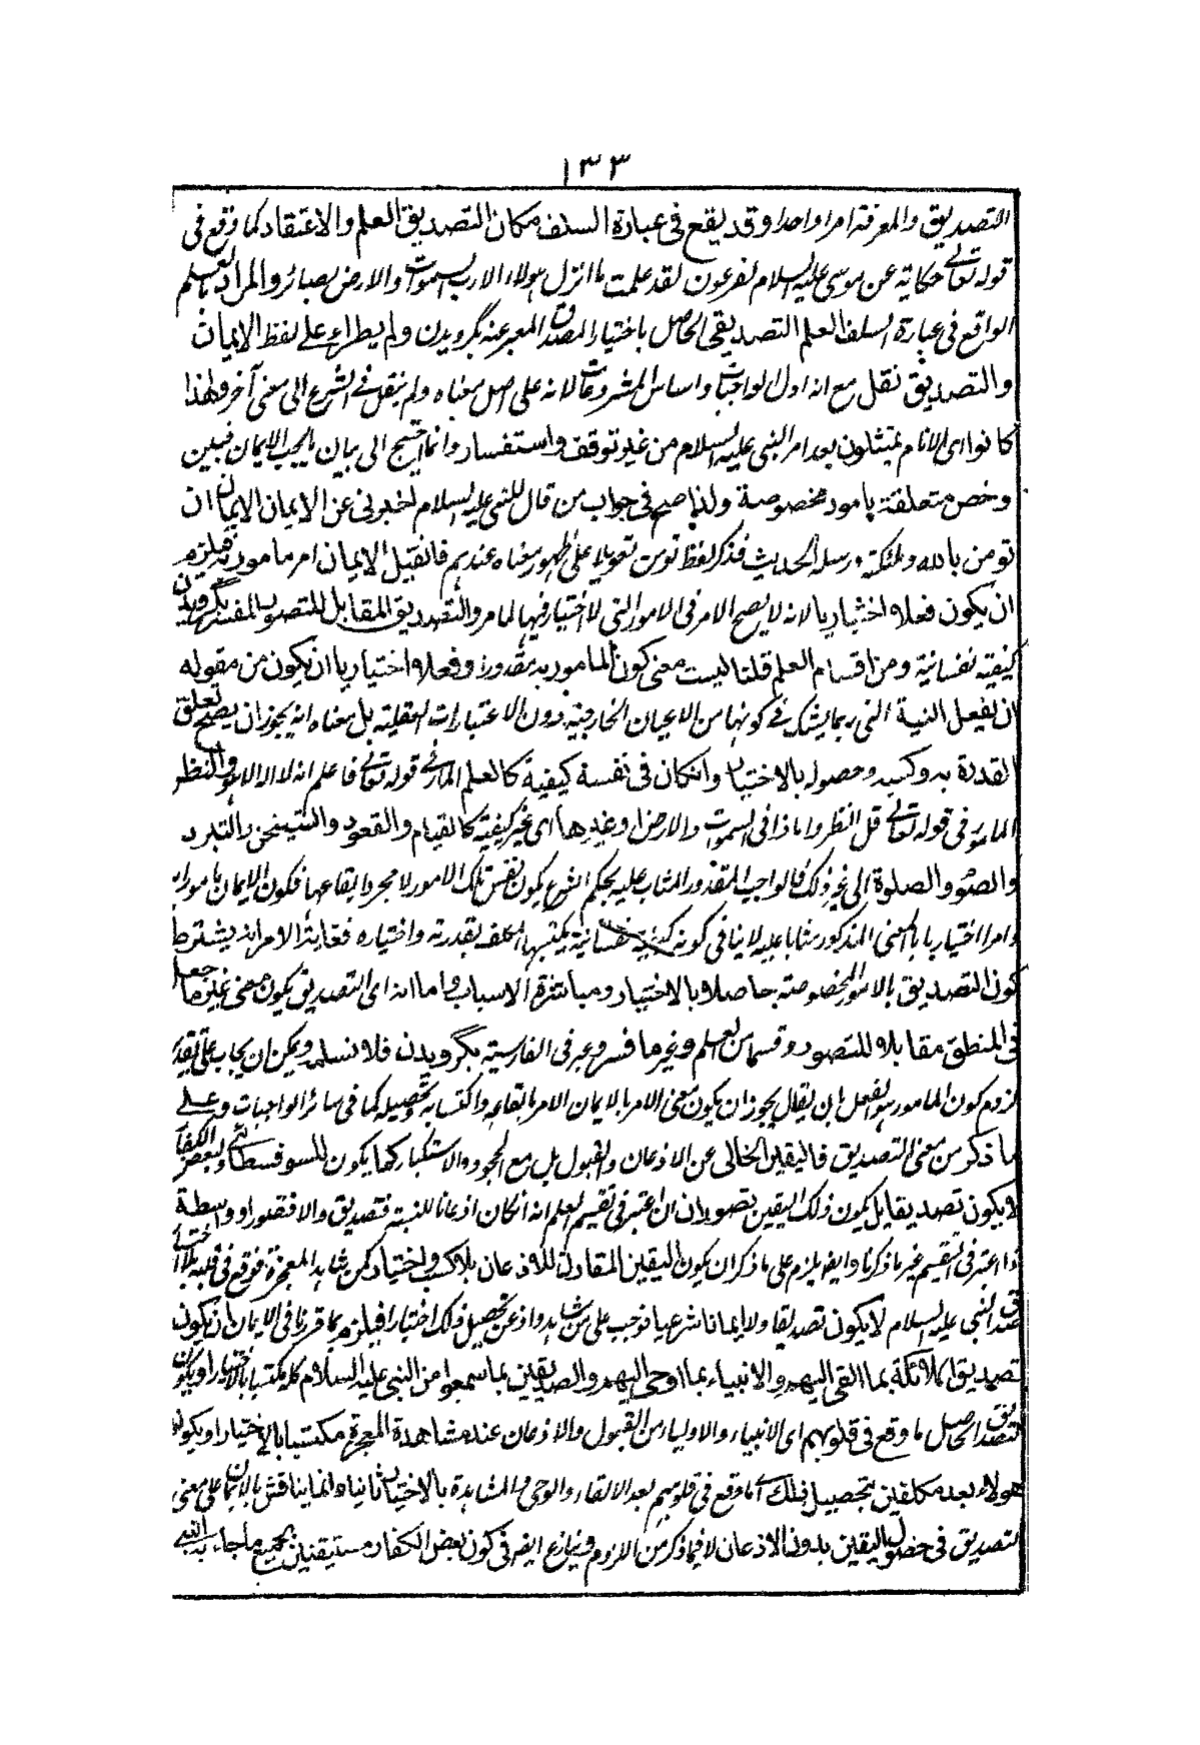 ١٣٣
التصديق والمعرفة امرا واحدا وقد يقع فى عبارة السلف مكان التصديق العلم والاعتقاد كما وقع فى
قوله تعالے حكاية عن موسى عليه السلام لفرعون لقد علمت ما انزل هولاء الا رب السموات والارض بصائر والمراد بالعلم
الواقع فى عبارة السلف العلم التصديقى الحاصل باختيار المصدق المعبر عنه بگرويدن ولم يطرا على لفظ الايمان
والتصديق نقل مع انه اول الواجبات واساس المشروعات لانه على اصل معناه ولم ينقل فے الشرع الى معنى آخر ولهذا
كانوا اى الانام يمتثلون بعد امر النبى عليه السلام من غير توقف واستفسار وانما احتيج الى بيان ما يجب الايمان فبين
وخص متعلقة بامور مخصوصة ولذا صح فى جواب من قال للنبى عليه السلام اخبرنى عن الايمان الايمان ان
تومن بالله وملئكته ورسله الحديث فذكر لفظ تومن تعويلا على ظهور معناه عندهم فان قيل الايمان امر مامور به فيلزم
ان يكون فعلا اختياريا لانه لا يصح الامر فى الامور التى لا اختيار فيها لما مر والتصديق المقابل للتصور المفسر بگرويدن
كيفية نفسانية ومن اقسام العلم قلنا ليست معنى كون المامور به مقدورا وفعلا اختياريا ان يكون من مقوله
ان يفعل النية التى ربما يشك فے كونها من الاعيان الخارجية دون الاعتبارات العقلية بل معناه انه يجوز ان يصح تعلق
القدرة به وكسبه وحصوله بالاختيار وان كان فى نفسه كيفية كالعلم المار فے قوله تعالے فاعلم انه لا اله الا هو والنظر
المامور فى قوله تعالے قل انظروا ماذا فى السموات والارض او غيرها اى غير كيفية كالقيام والقعود والتسخن والتبرد
والصوم والصلوة الى غير ذلك فالواجب المقدور المثاب عليه بحكم الشرع يكون نفس تلك الامور لا مجرد ايقاعها فكون الايمان مامورا به
وامرا اختياريا بالمعنى المذكور مثابا عليه لا ينافى كونه كيفية نفسانية يكتسبها المكلف بقدرته واختياره فغاية الامر انه يشترط
كون التصديق بالامور المخصوصة حاصلا بالاختيار ومباشرة الاسباب واما انه اى التصديق يكون معنى غير ما جعل
فى المنطق مقابلا للتصور وقسما من العلم وغير ما فسر وعبر فى الفارسية بگرويدن فلا نسلمه ويمكن ان يجاب على تقدير
لزوم كون المامور به هو الفعل بان يقال يجوز ان يكون معنى الامر بالايمان الامر بايقاعه واكتسابه وتحصيله كما فى سائر الواجبات وعلے
ما ذكر من معنى التصديق فاليقين الخالى عن الاذعان والقبول بل مع الجحود والاستكبار كما يكون للسوفسطائى ولبعض الكفار
لا يكون تصديقا بل يكون ذلك اليقين تصورا ان اعتبر فى تقسيم العلم انه ان كان اذعانا للنسبة فتصديق والا فتصور او واسطة
اذا اعتبر فى التقسيم غير ما ذكرنا وايضا يلزم على ما ذكر ان يكون اليقين المقارن للاذعان بلا كسب واختيار كمن شاهد المعجزة فوقع فى قلبه بلا اختيار
صدق النبى عليه السلام لا يكون تصديقا ولا ايمانا شرعيا فوجب على من شاهد واذعن تحصيل ذلك اختيارا فيلزم مما قررنا فى الايمان ان يكون
تصديق الملائكة بما القى اليهم والانبياء بما اوحى اليهم والصديقين بما سمعوا من النبى عليه السلام كله مكتسبا بالاختيار او يكون
التصديق الحاصل ما وقع فى قلوبهم اى الانبياء والاولياء من القبول والاذعان عند مشاهدة المعجزة مكتسبا بالاختيار او يكون
هولاء بعد مكلفين بتحصيل ذلك اى ما وقع فى قلوبهم بعد الالقاء والوحى والمشاهدة بالاختيار ثانيا وانما يناقش بالايمان على معنى
التصديق فى حصول اليقين بدون الاذعان لا فيما ذكر من اللزوم وينازع ايضا فى كون بعض الكفار مستيقنين بجميع ما جاء به النبى